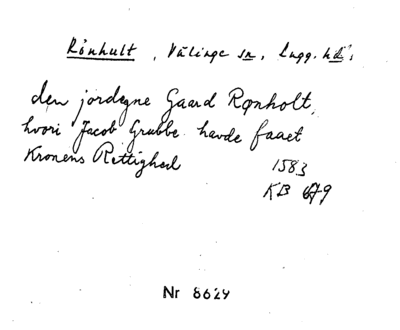 Rönhult, Välinge sn, Lugg. hd,
den jordegne Gaard Rønholt,
hvori Jacob Grubbe havde faaet
Kronens Rettighed 1583
KB 679
Nr 8629